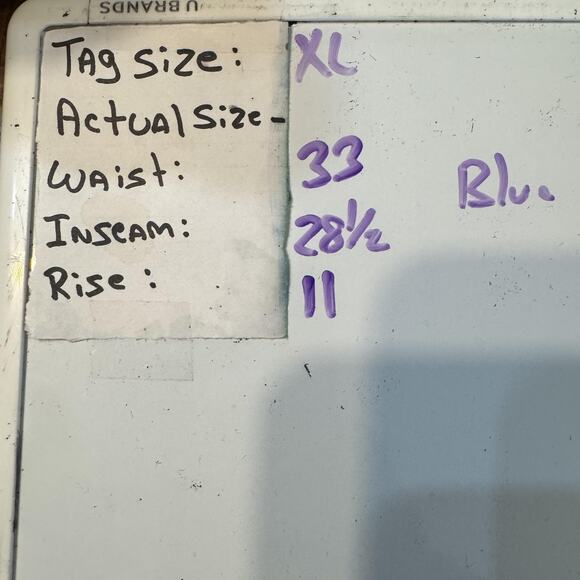 U BRANDS
Tag Size: XL
Actual Size-
Waist: 33
Blue
Inseam: 28 1/2
Rise: 11